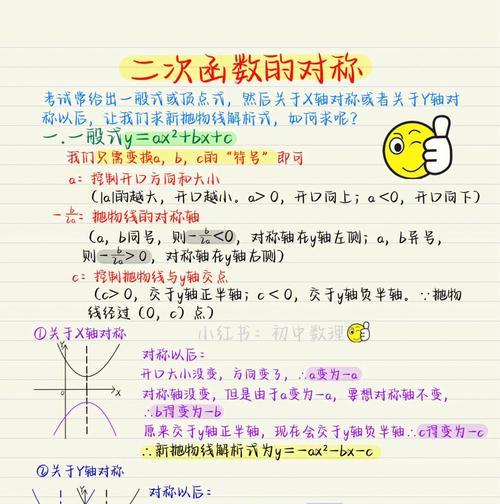 二次函数的对称
考试常给出一般式或顶点式，然后关于X轴对称或者关于Y轴对
称以后，让我们求新抛物线解析式，如何求呢？
一.一般式y=ax²+bx+c
我们只需变换a，b，c的“符号”即可
a：控制开口方向和大小
（|a|的越大，开口越小。a>0，开口向上；a<0，开口向下）
-b/2a：抛物线的对称轴
（a，b同号，则-b/2a<0，对称轴在y轴左侧；a，b异号，
则-b/2a>0，对称轴在y轴右侧）
c：控制抛物线与y轴交点
（c>0，交于y轴正半轴；c<0，交于y轴负半轴。∵抛物
线经过（0，c）点）
①关于X轴对称
小红书：初中数理
y
x
对称以后：
开口大小没变，方向变了，∴a变为-a
对称轴没变，但是由于a变为-a，要想对称轴不变，
∴b得变为-b
原来交于y轴正半轴，现在会交于y轴负半轴∴c得变为-c
∴新抛物线解析式为y=-ax²-bx-c
②关于Y轴对称
y
对称以后：